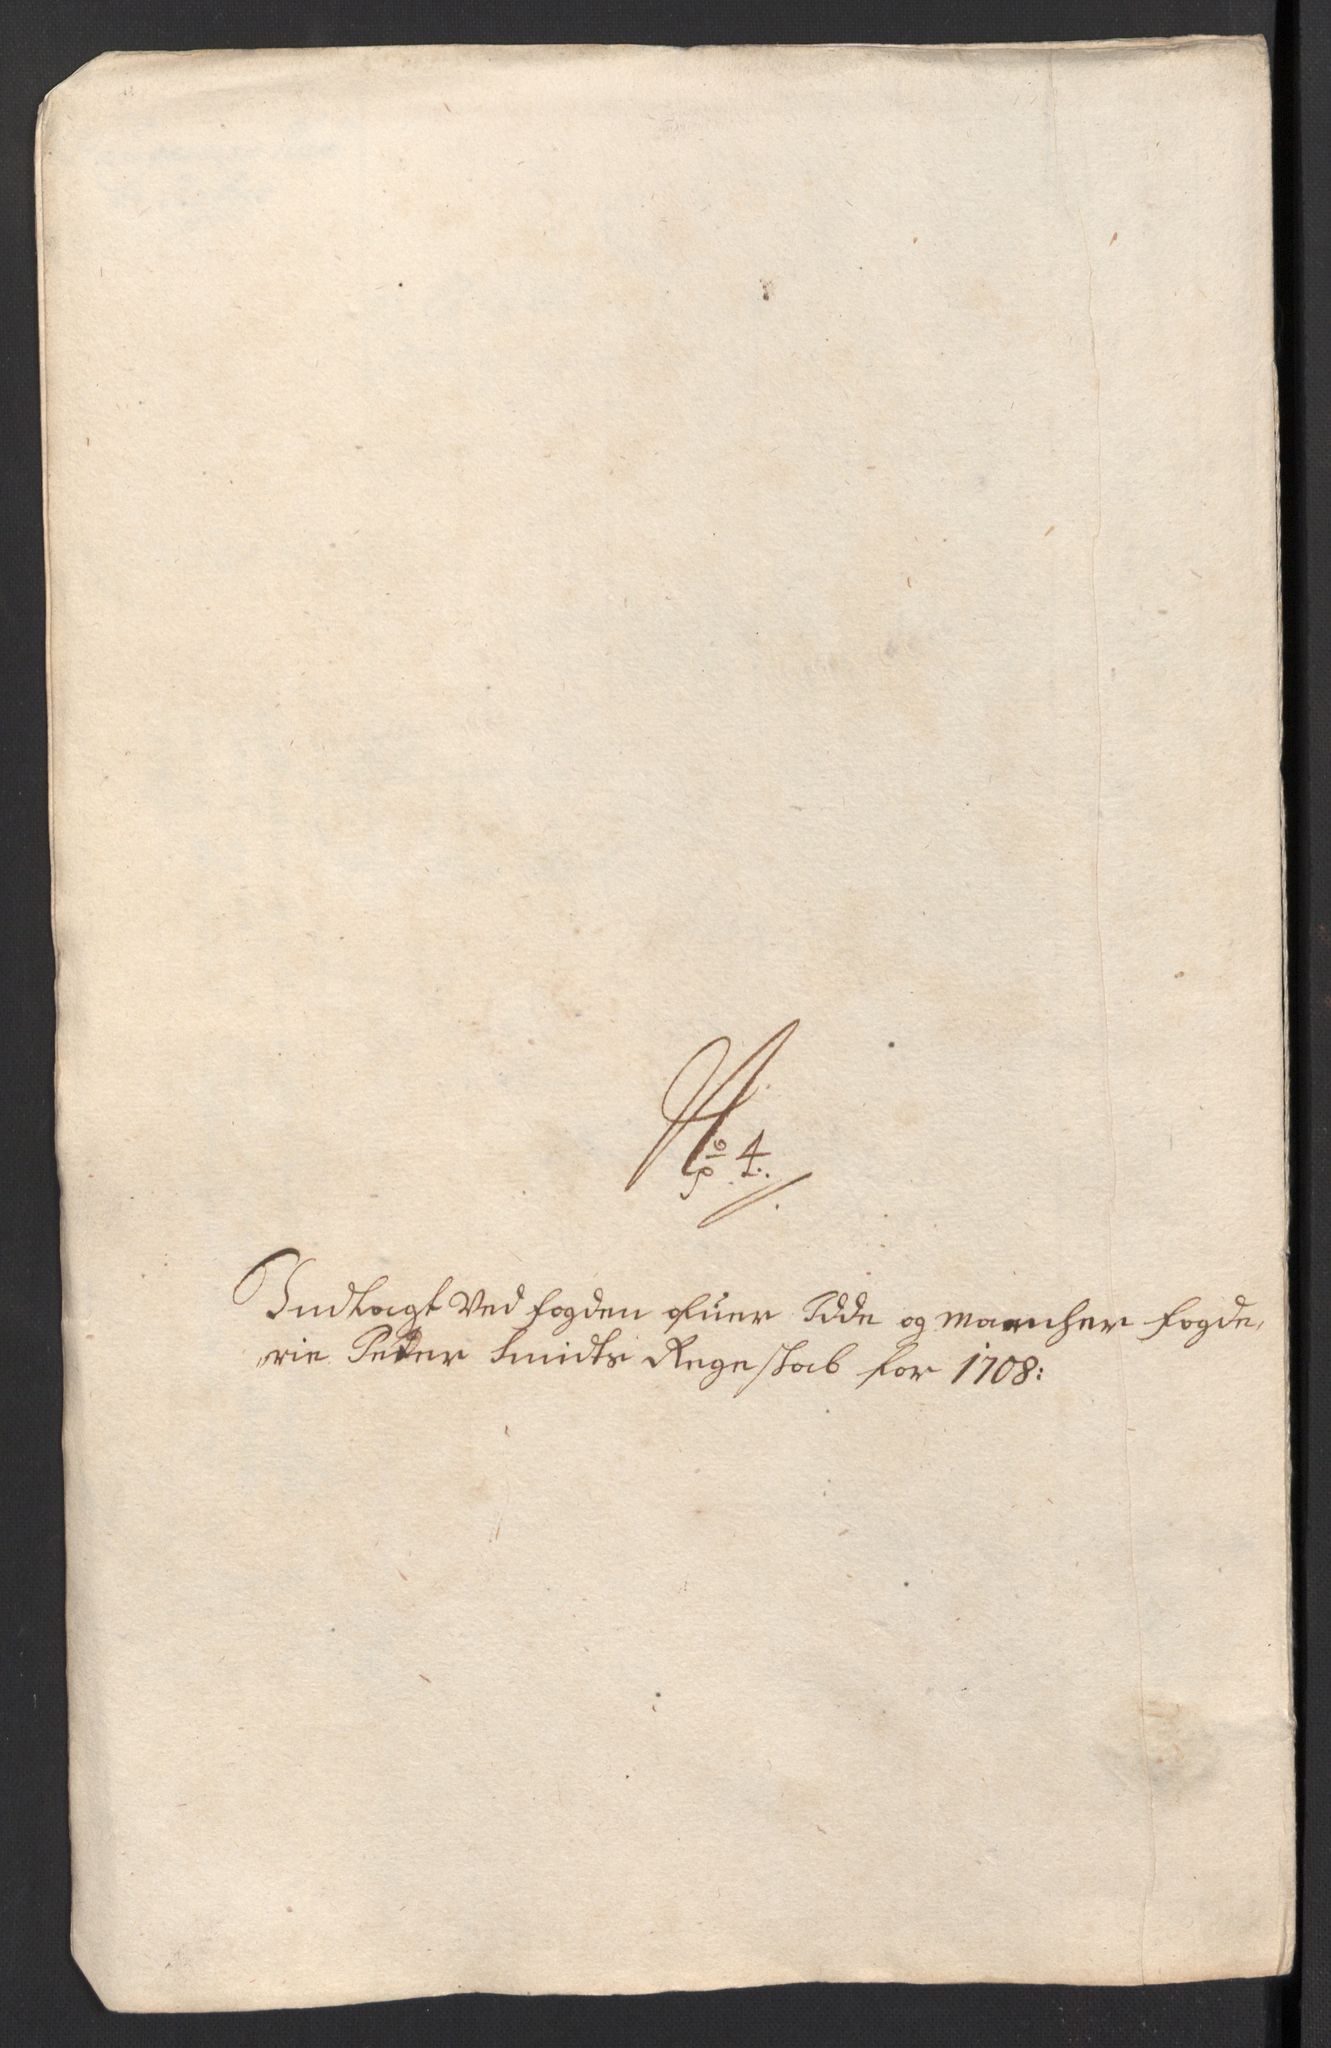 No 4.
Indlagt Ved fogden ofuer Idde og Marcher fogde,
rie Petter Smidts Regeskab for 1708: